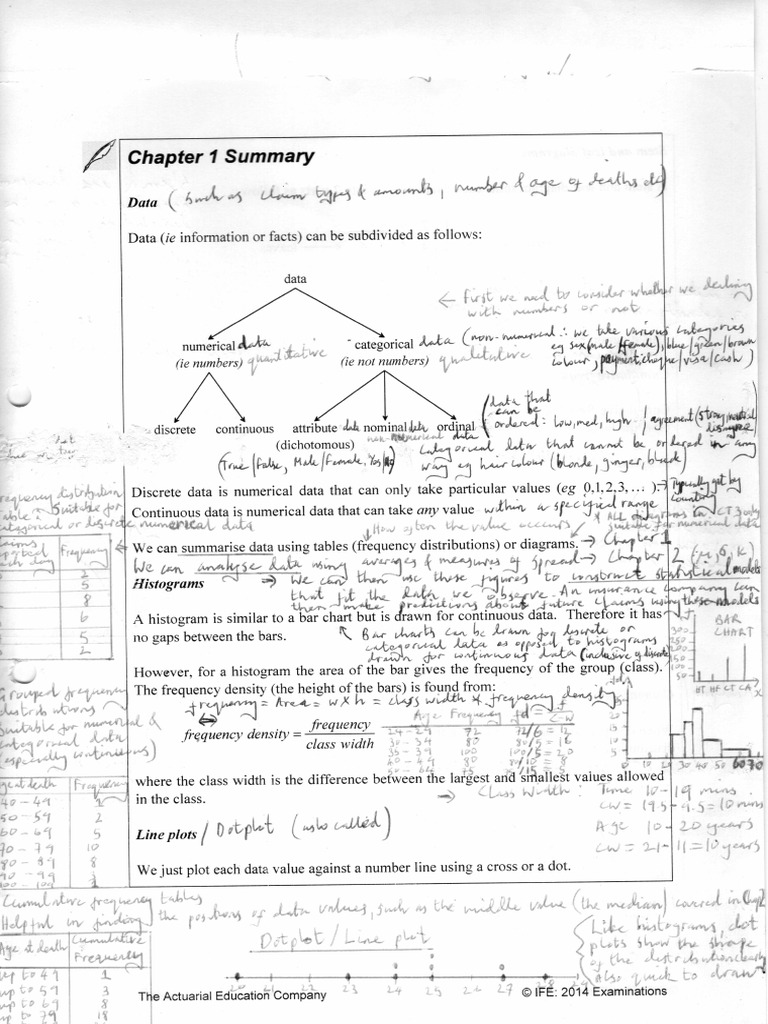 Chapter 1 Summary
Data (such as claim types & amounts, number & age of deaths etc)
Data (ie information or facts) can be subdivided as follows:
data
← First we need to consider whether we dealing
with numbers or not
numerical data
(ie numbers) quantitative
categorical data (non-numerical ∴ we take various categories
(ie not numbers) qualitative
eg sex (male/female), blue/green/brown
colour, payment: cheque/visa/cash)
discrete continuous attribute data nominal data ordinal data
(dichotomous) non-numerical
(True/False, Male/Female, Yes/No)
(data that
can be
ordered: low, med, high
categorical data that cannot be ordered in any
way eg hair colour (blonde, ginger, black)
Discrete data is numerical data that can only take particular values (eg 0,1,2,3, … ). → Typically get by
counting
Continuous data is numerical data that can take any value within a specified range
* All diagrams in CT3 only
suitable for numerical data
↓ How often the value occurs
We can summarise data using tables (frequency distributions) or diagrams. → Chapter 1
We can analyse data using averages & measures of spread → Chapter 2
Histograms → We can then use these figures to construct statistical models
that fit the data we observe. An insurance company can
then make predictions about future claims using these models
A histogram is similar to a bar chart but is drawn for continuous data. Therefore it has
no gaps between the bars.
Bar charts can be drawn for discrete or
categorical data as opposed to histograms
drawn for continuous data (inclusive of discrete)
However, for a histogram the area of the bar gives the frequency of the group (class).
The frequency density (the height of the bars) is found from:
frequency = Area = w x h = class width x frequency density
frequency density = frequency
class width
Age Frequency fd = f
C-W
24 - 29 72 72/6 = 12
30 - 34 80 80/5 = 16
35 - 39 100 100/5 = 20
40 - 49 80 80/10 = 8
where the class width is the difference between the largest and smallest values allowed
in the class.
→ Class Width : Time 10 - 19 mins
CW = 19.5 - 9.5 = 10 mins
Age 10 - 20 years
CW = 21 - 11 = 10 years
Line plots / Dotplot (also called)
We just plot each data value against a number line using a cross or a dot.
BAR
CHART
300
250
200
150
100
50
HT HF CT CA
x
fd
25
20
15
10
5
10 20 30 40 50 60 70
frequency distribution
table suitable for
categorical or discrete numerical data
Frequency
2
5
8
6
5
2
Grouped frequency
distributions
suitable for numerical &
categorical data
especially continuous)
Age at death Frequency
40 - 49 1
50 - 59 2
60 - 69 5
70 - 79 10
80 - 89 8
90 - 99 3
100 - 109 1
Cumulative frequency tables
Helpful in finding the positions of data values, such as the middle value (the median) covered in Chap 2
Age at death Cumulative
Frequency
up to 49 1
up to 59 3
up to 69 8
up to 79 18
Dotplot / Line plot
20 21 22 23 24 25 26 27 28 29
Like histograms, dot
plots show the shape
of the distribution clearly
also quick to draw
The Actuarial Education Company
© IFE: 2014 Examinations